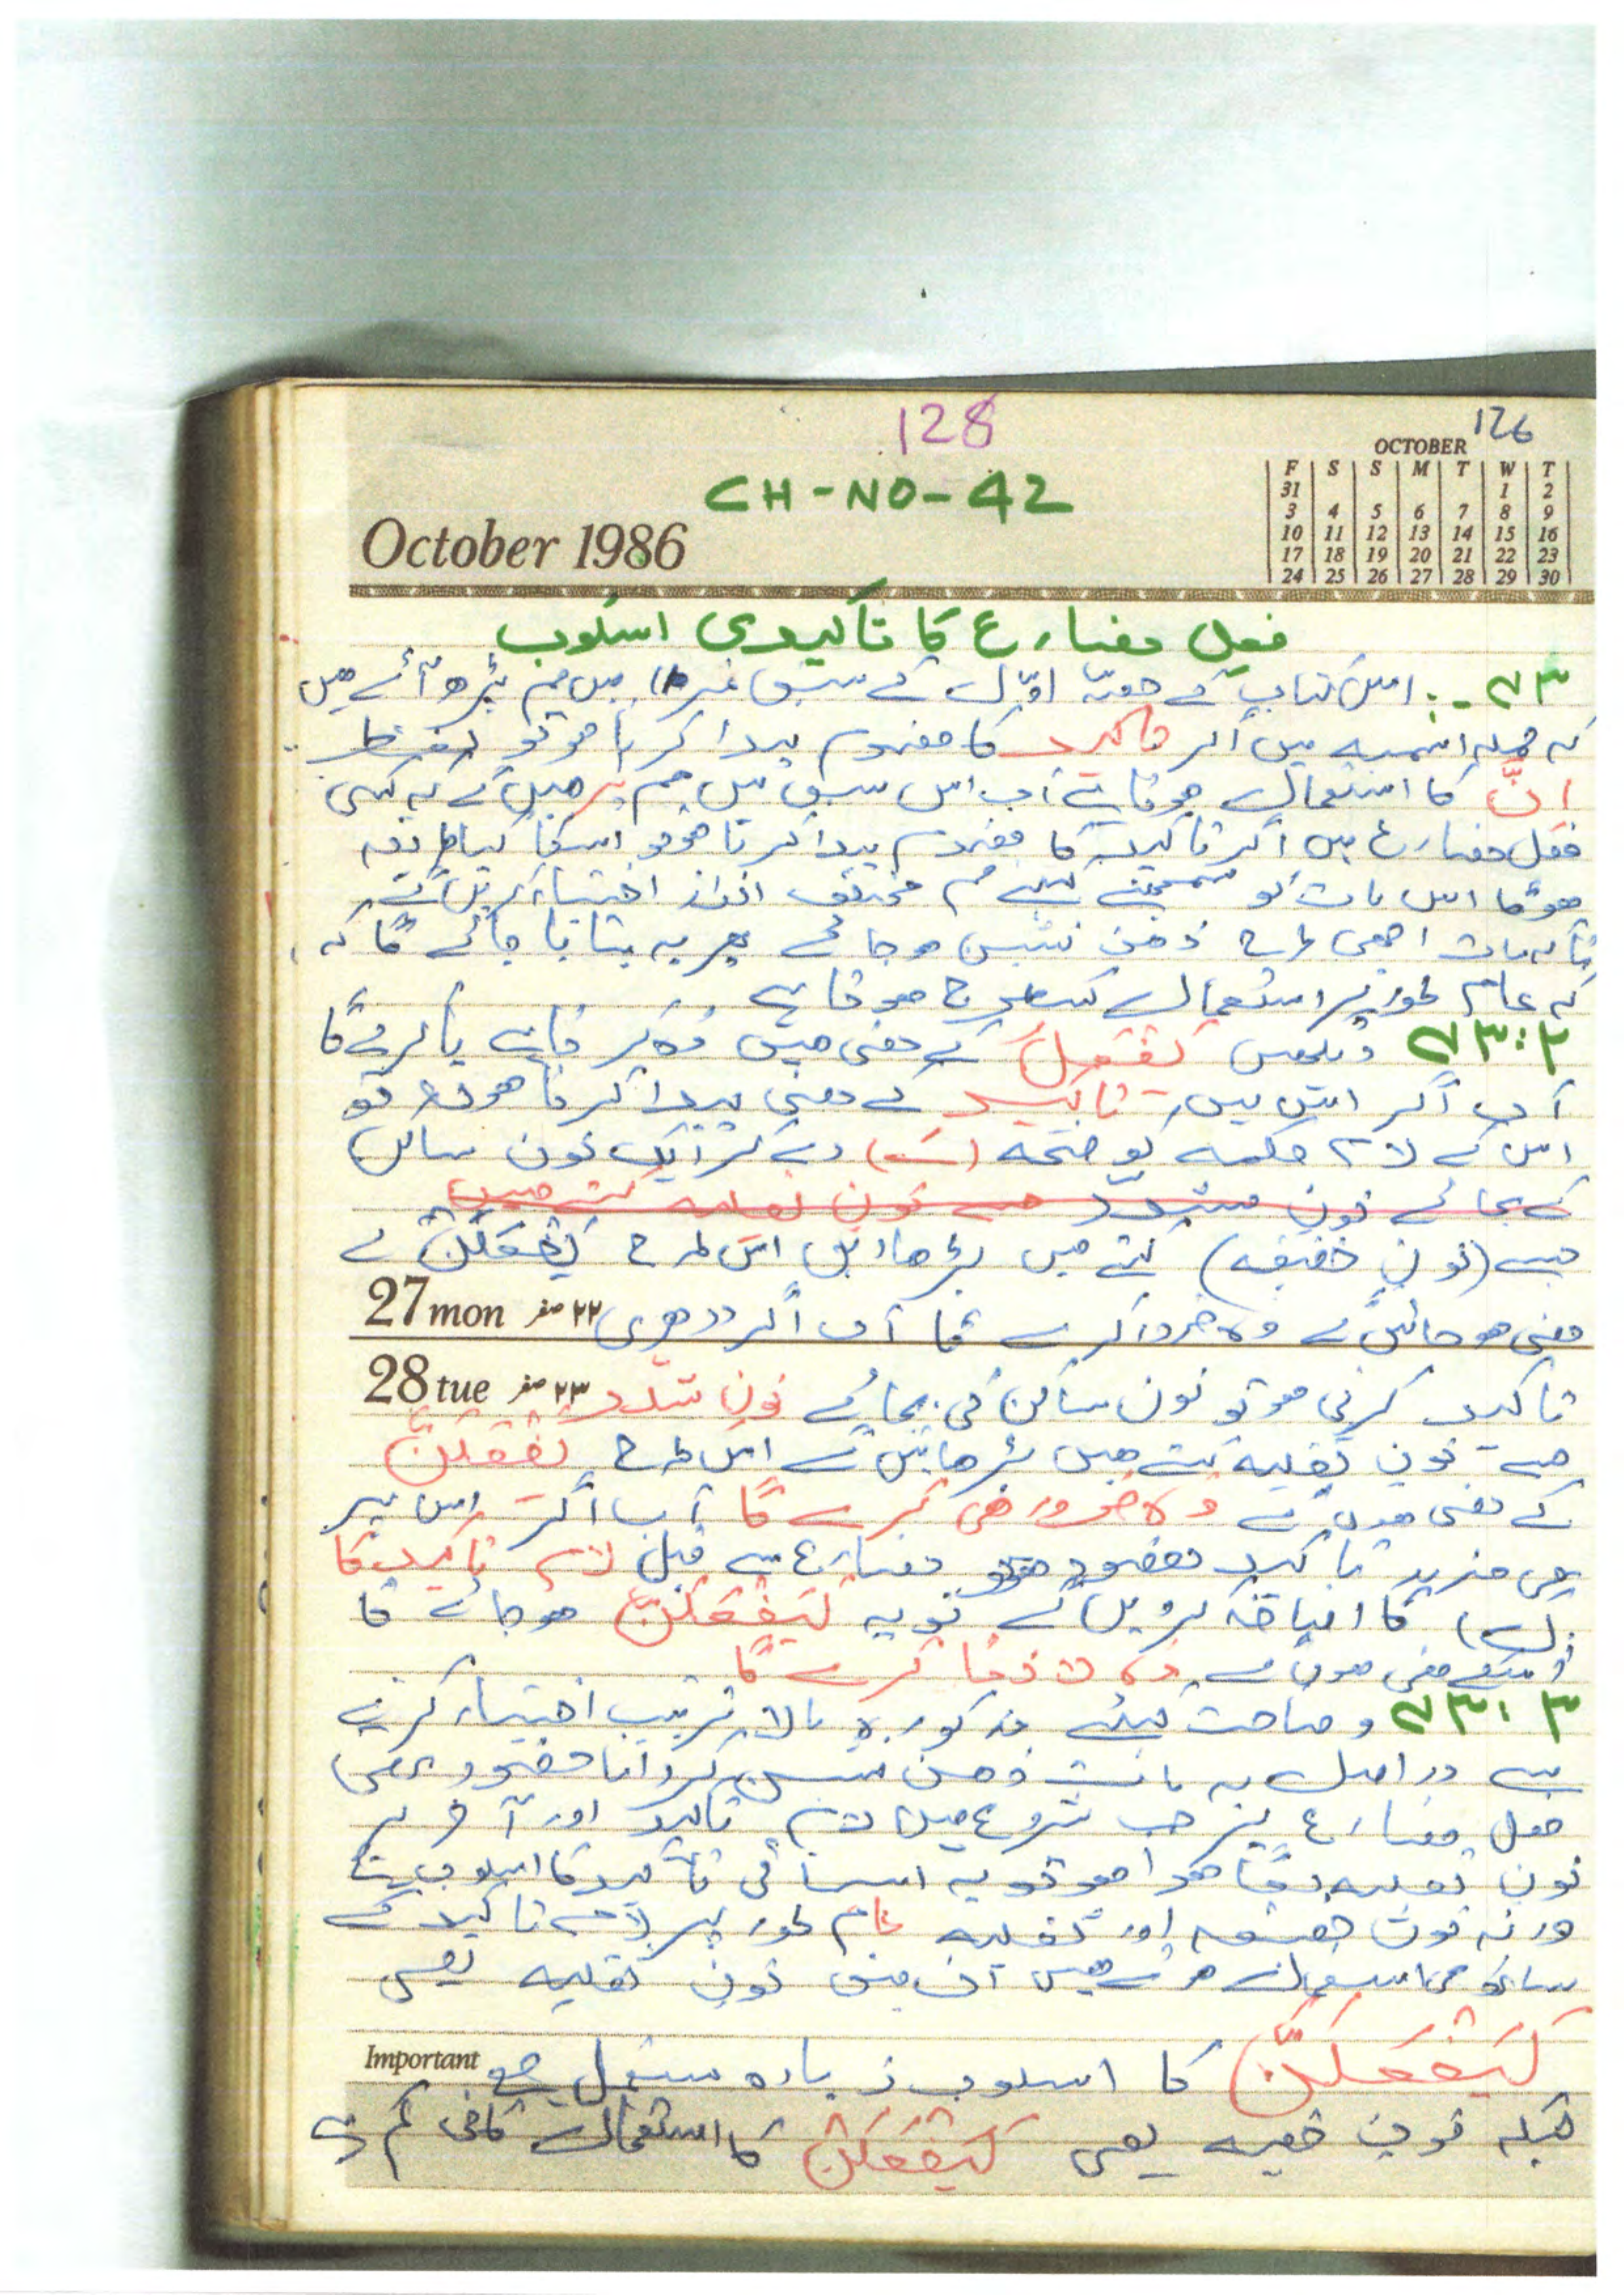 128
126
CH-NO-42
OCTOBER
F S S M T W T
31 1 2
3 4 5 6 7 8 9
10 11 12 13 14 15 16
17 18 19 20 21 22 23
24 25 26 27 28 29 30
October 1986
فعل مضارع کا تاکیدی اسلوب
اس کتاب کے حصّہ اوّل کے سبق نمبر میں ہم پڑھ آئے ہیں
کہ جملہ اسمیہ میں اگر تاکید کا مفہوم پیدا کرنا ہو تو
انَّ کا استعمال ہوتا ہے اب اس سبق میں ہم پڑھیں گے کہ کسی
فعل مضارع میں اگر تاکید کا مفہوم پیدا کرنا ہو تو اسکا کیا طریقہ
ہوگا اس بات کو سمجھنے کیلئے ہم مختلف انداز اختیار کریں گے
تاکہ بات اچھی طرح ذہن نشین ہو جائے پھر یہ بتایا جائے گا کہ
کہ عام طور پر استعمال کسطرح ہوتا ہے
۴۳:۲ دیکھیں یَفْعَلُ کے معنی ہیں وہ کرتا ہے یا کرے گا
اب اگر اس میں تاکید کے معنی پیدا کرنا ہوں تو
اس کے لام کلمہ کو فتحہ (ـَـ) دے کر ایک نون ساکن
کے بجائے نون مشدد جسے نون ثقلیہ کہتے ہیں
جسے (نونِ خفیفہ) کہتے ہیں بڑھا اس طرح یَفْعَلَنْ کے
27 mon ۲۲ صفر
معنی ہو جائیں گے وہ ضرور کرے گا اب اگر دوہری
28 tue ۲۳ صفر
تاکید کرنی ہو تو نون ساکن کی بجائے نون مشدد
جسے نون ثقلیہ کہتے ہیں بڑھائیں گے اس طرح یَفْعَلَنَّ
کے معنی ہوں گے وہ ضرور ہی کرے گا اب اگر اس پر
بھی مزید تاکید مقصود ہو تو مضارع سے قبل لامِ تاکید کا
(لَ) کا اضافہ کر دیں گے تو یہ لَیَفْعَلَنَّ ہو جائے گا
اسکے معنی ہوں گے وہ لازما کرے گا
۴۳:۳ وضاحت کیلئے مذکورہ بالا ترتیب اختیار کرنے
سے دراصل یہ بات ذہن نشین کروانا مقصود تھی
فعل مضارع پر جب شروع میں لامِ تاکید اور آخر پر
نون ثقلیہ لگا ہوا ہو تو یہ انتہائی تاکید کا اسلوب ہے
ورنہ نون خفیفہ اور ثقلیہ عام طور پر لامِ تاکید کے
ساتھ ہی استعمال ہوتے ہیں نون ثقلیہ یعنی
Important
لَیَفْعَلَنَّ کا اسلوب زیادہ مستعمل ہے
جبکہ نون خفیفہ یعنی لَیَفْعَلَنْ کا استعمال کافی کم ہے